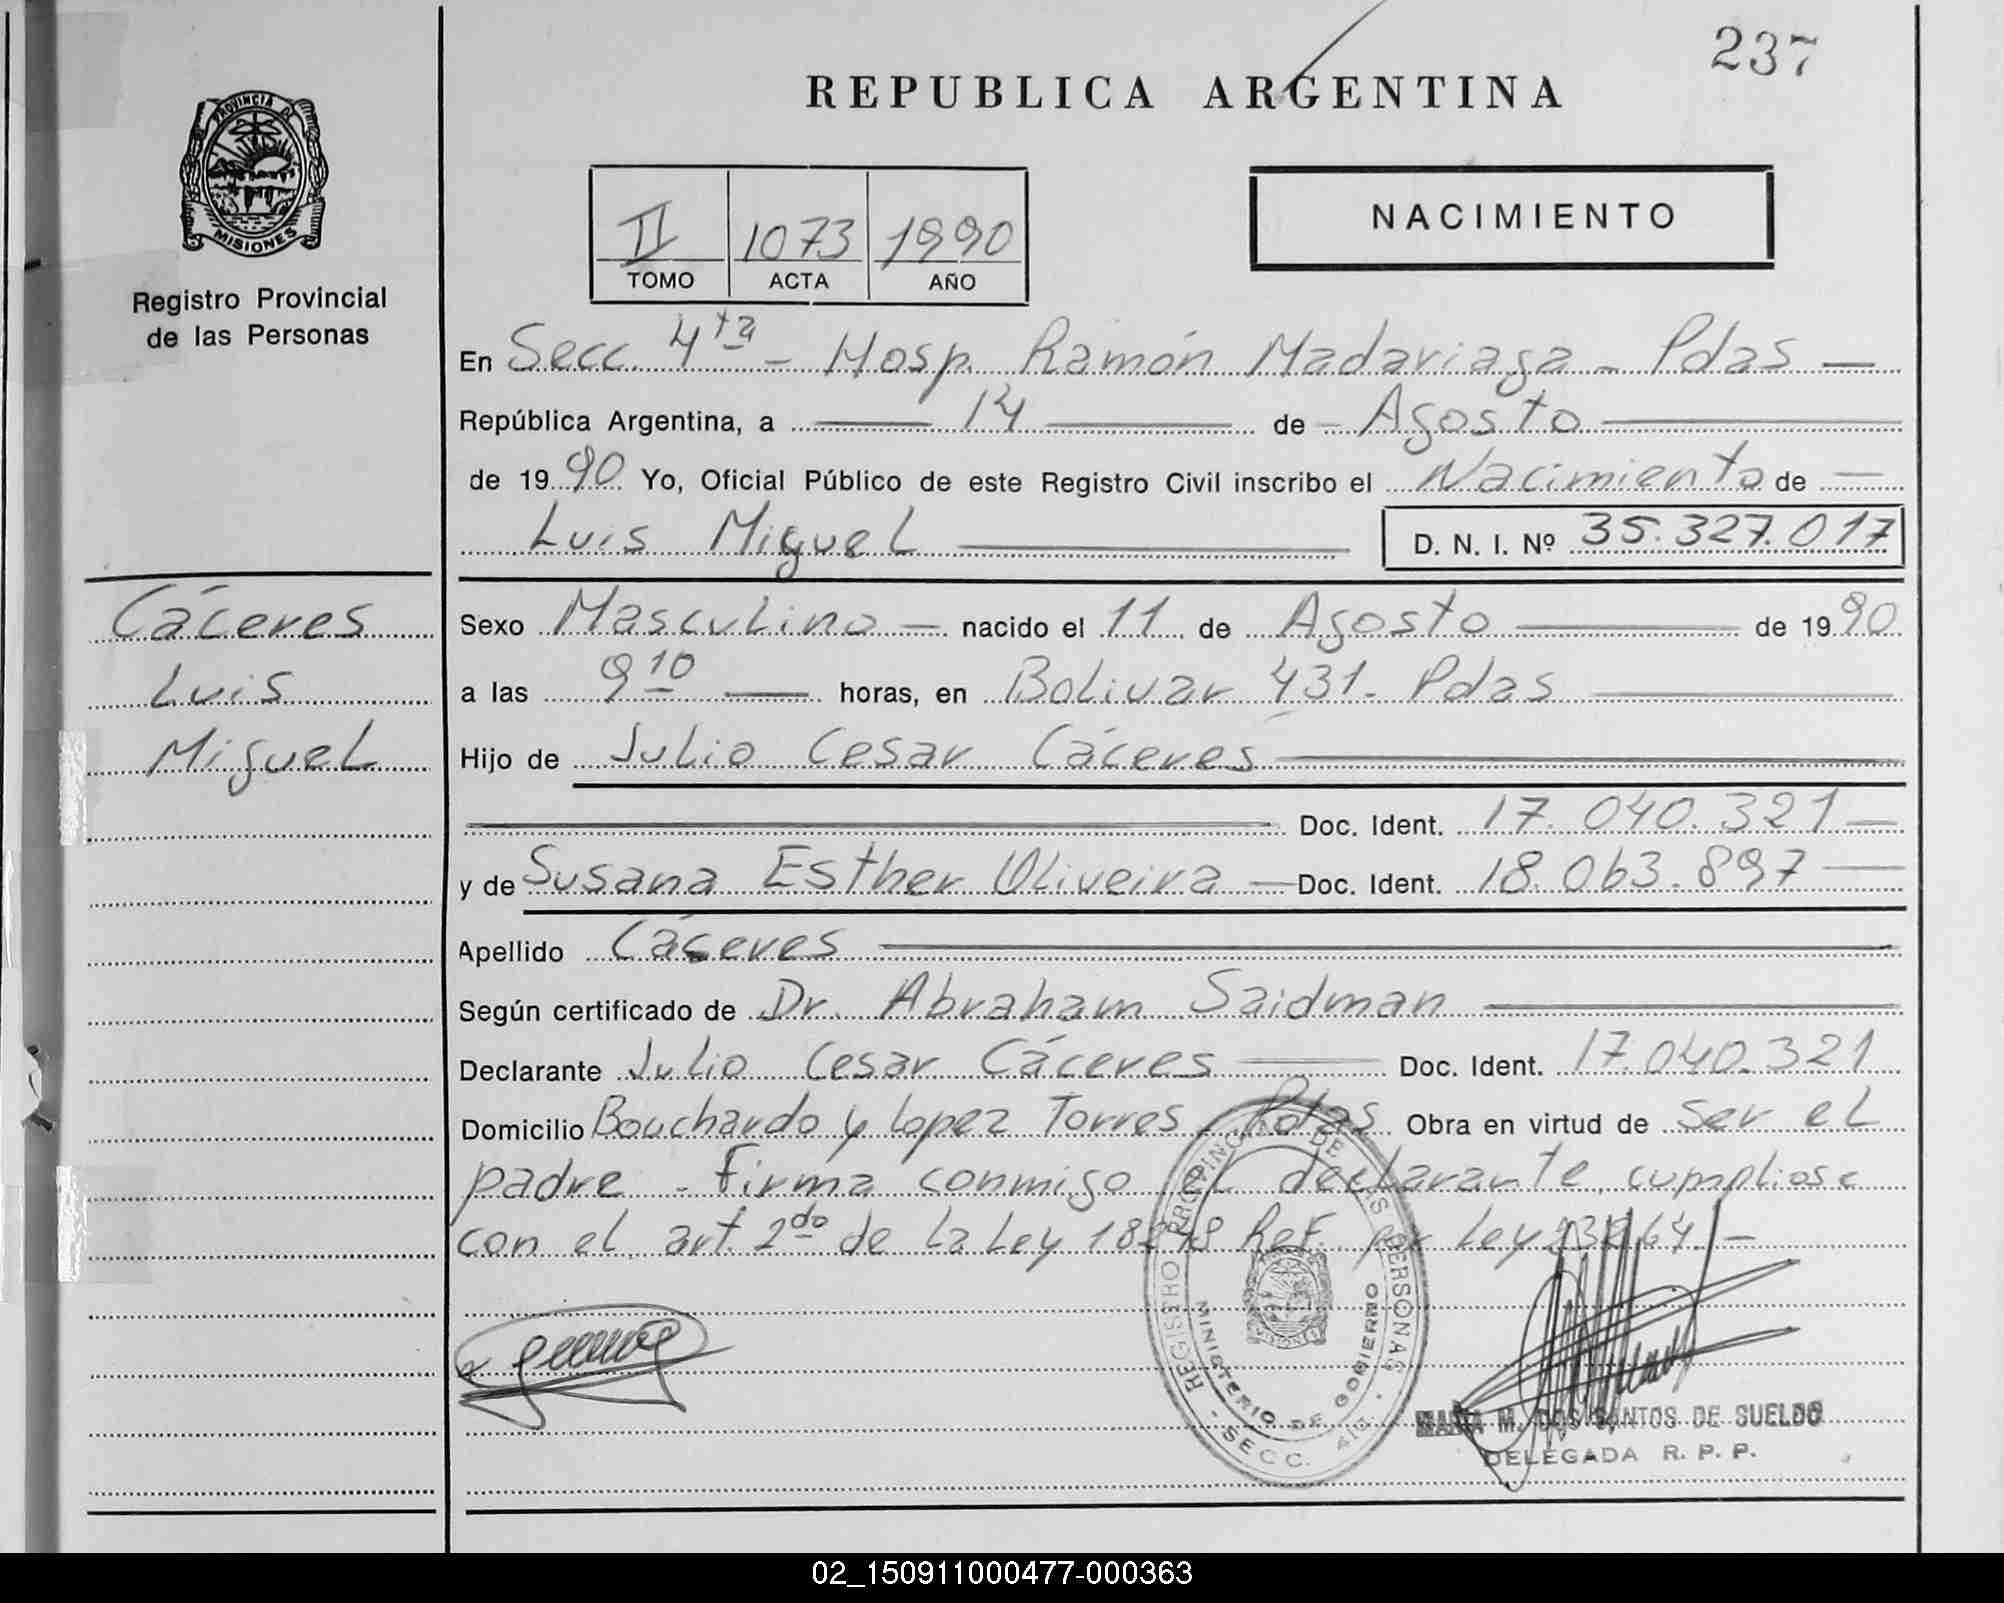 237
REPUBLICA ARGENTINA
PROVINCIA DE
MISIONES
Registro Provincial
de las Personas
II 1073 1990
TOMO ACTA AÑO
NACIMIENTO
En Secc. 4ta - Hosp. Ramón Madariaga - Pdas -
República Argentina, a 14 de Agosto
de 1990 Yo, Oficial Público de este Registro Civil inscribo el Nacimiento de
Luis Miguel D. N. I. Nº 35.327.017
Cáceres
Luis
Miguel
Sexo Masculino nacido el 11 de Agosto de 1990
a las 9 10 horas, en Bolivar 431 - Pdas
Hijo de Julio Cesar Cáceres
Doc. Ident. 17.040.321
y de Susana Esther Oliveira Doc. Ident. 18.063.897
Apellido Cáceres
Según certificado de Dr. Abraham Saidman
Declarante Julio Cesar Cáceres Doc. Ident. 17.040.321
Domicilio Bouchardo y Lopez Torres, Pdas Obra en virtud de ser el
padre - Firma conmigo el declarante, cumpliose
con el art. 2do de la Ley Ref. por Ley
REGISTRO PROVINCIAL DE LAS PERSONAS
MINISTERIO DE GOBIERNO
- SECC. 4ta -
MISIONES
MARIA M. DOS SANTOS DE SUELDO
DELEGADA R. P. P.
02_150911000477-000363